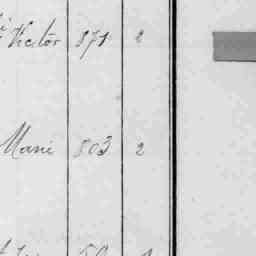 Victor 871 2
Marie 803 2
50